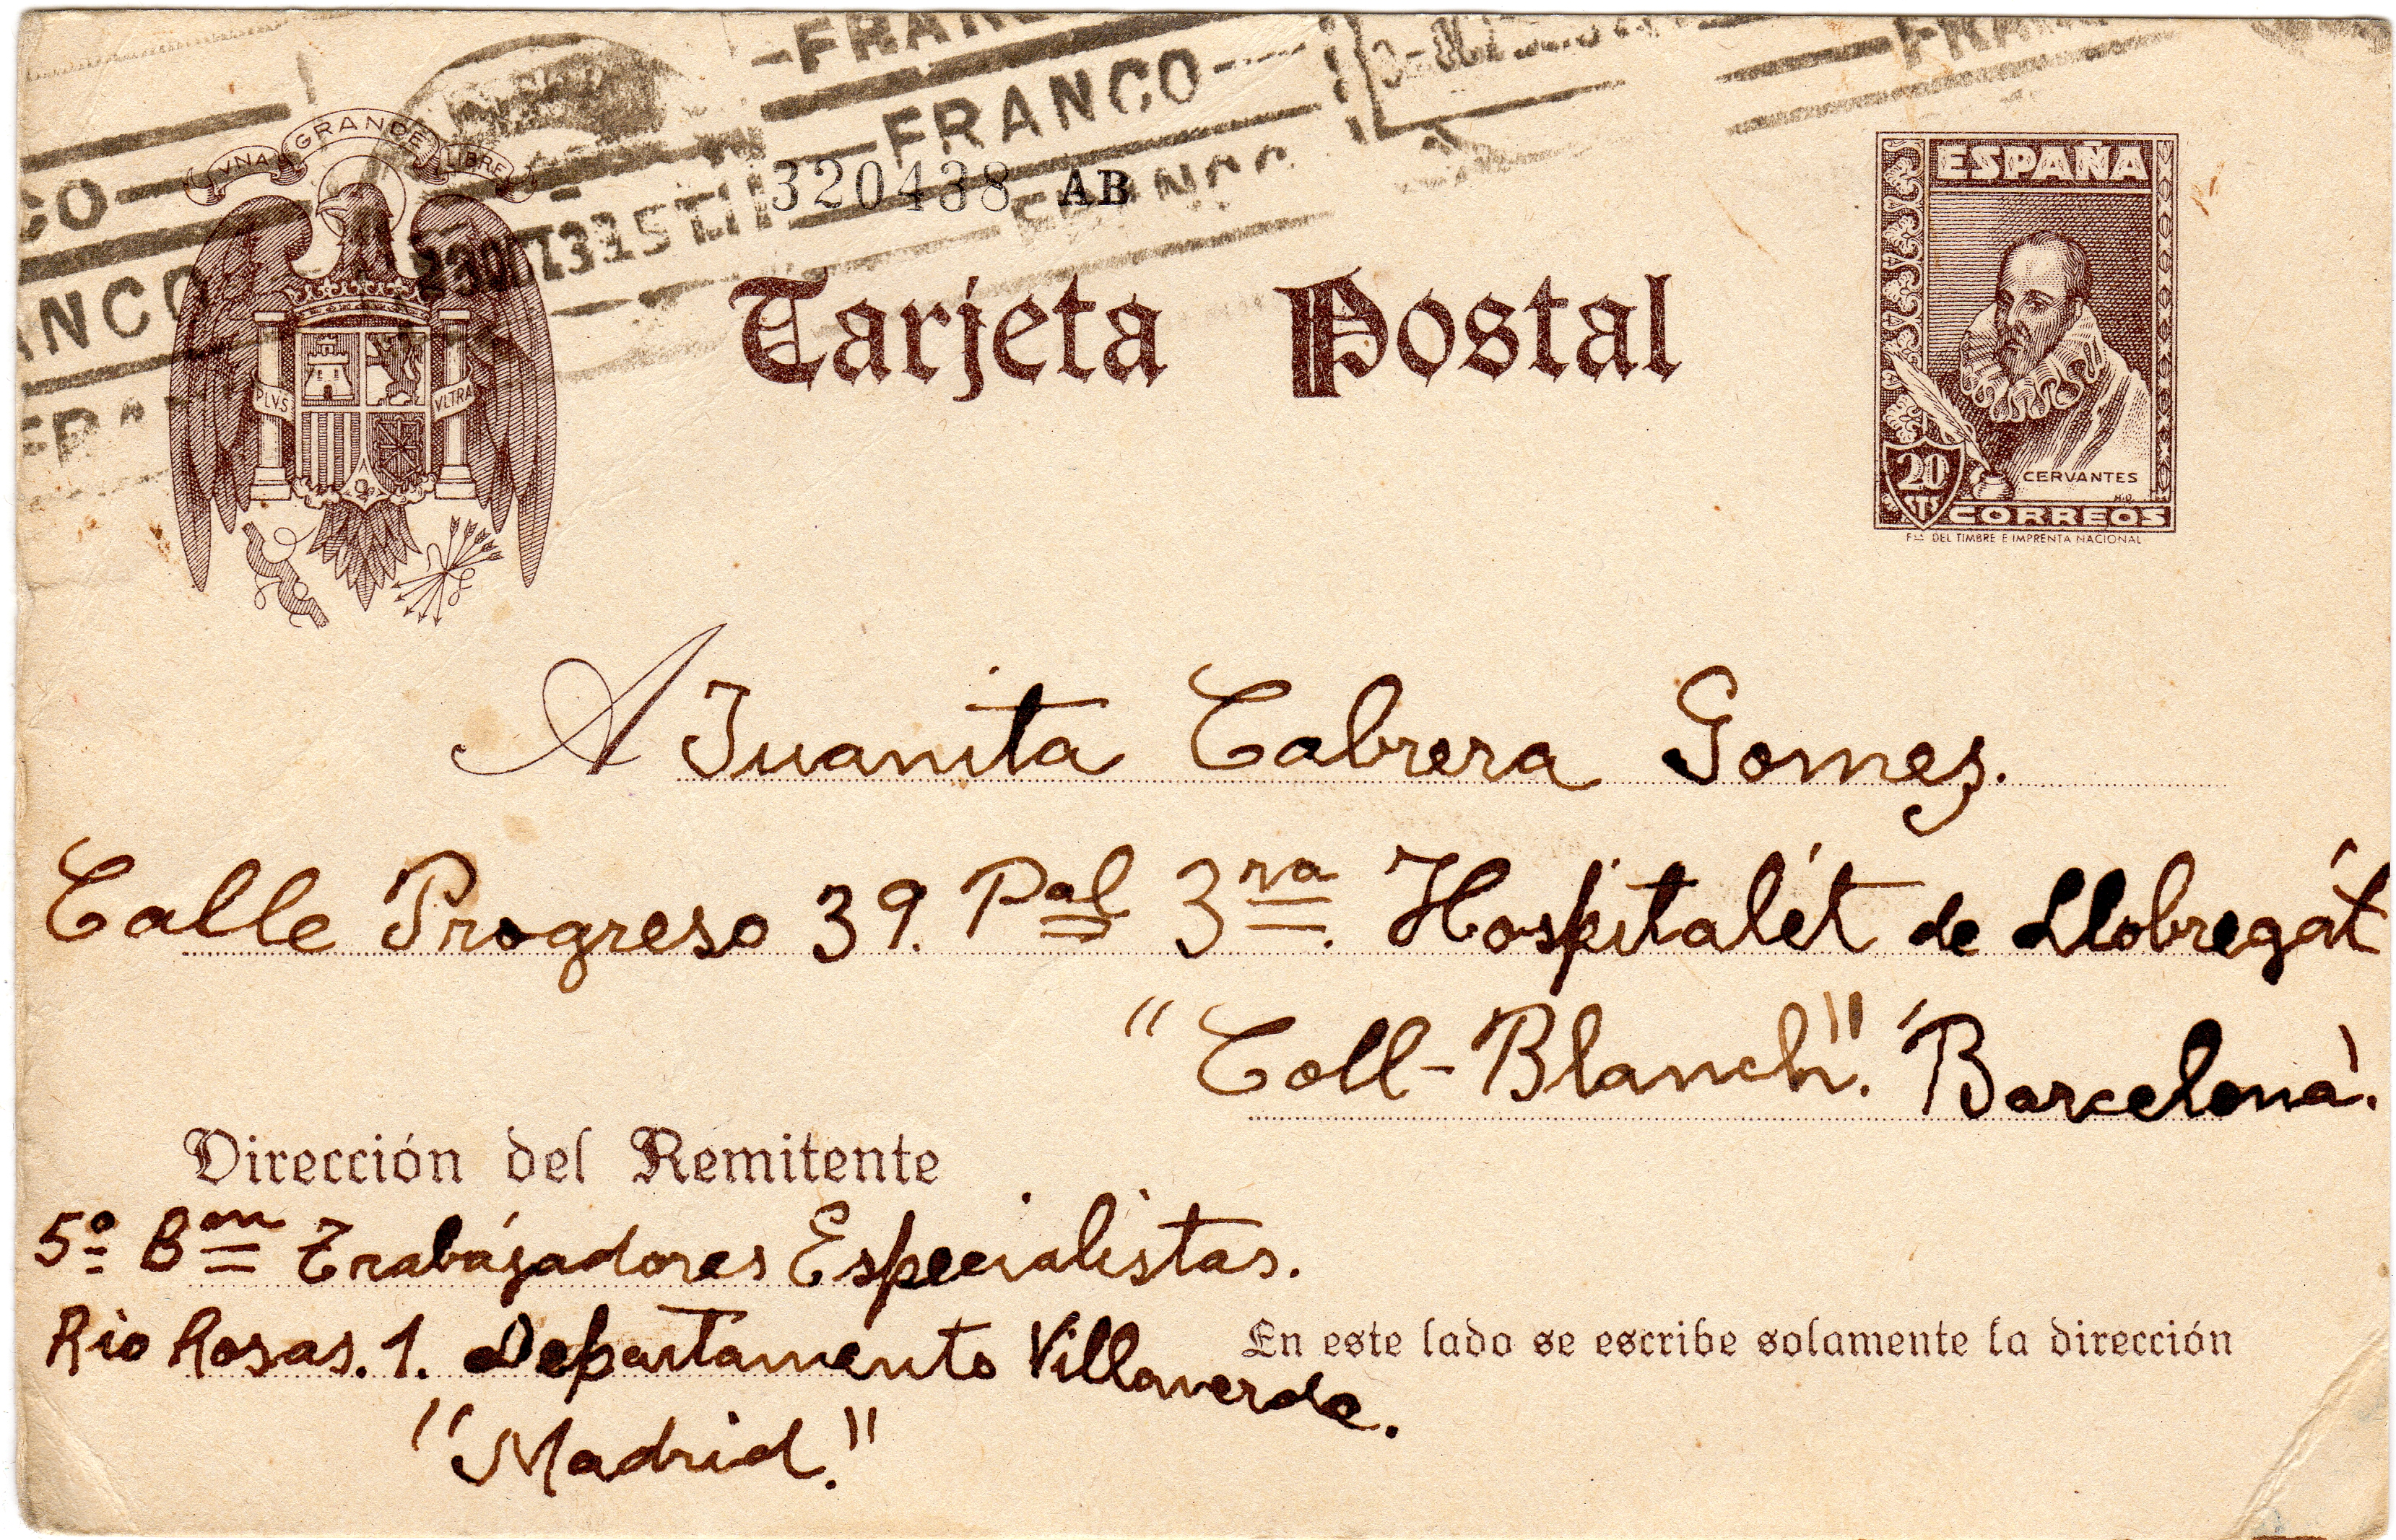 FRANCO
FRANCO
VNA GRANDE LIBRE
320438 AB
FRANCO
PLVS VLTRA
Tarjeta Postal
ESPAÑA
20 CTS
CERVANTES
CORREOS
Fca DEL TIMBRE E IMPRENTA NACIONAL
A Juanita Cabrera Gomez.
Calle Progreso 39. Pal 3ra. Hospitalét de Llobregát
"Coll-Blanch". "Barcelona".
Dirección del Remitente
5º Bon Trabájadores Especialistas.
Rio Rosas. 1. Departamento Villaverde.
En este lado se escribe solamente la dirección
"Madrid."